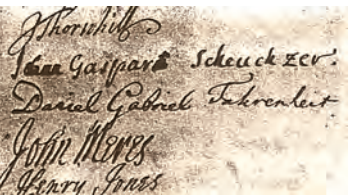 Johann Gaspard Scheuchzer.
Daniel Gabriel Fahrenheit
John Meres
Henry Jones